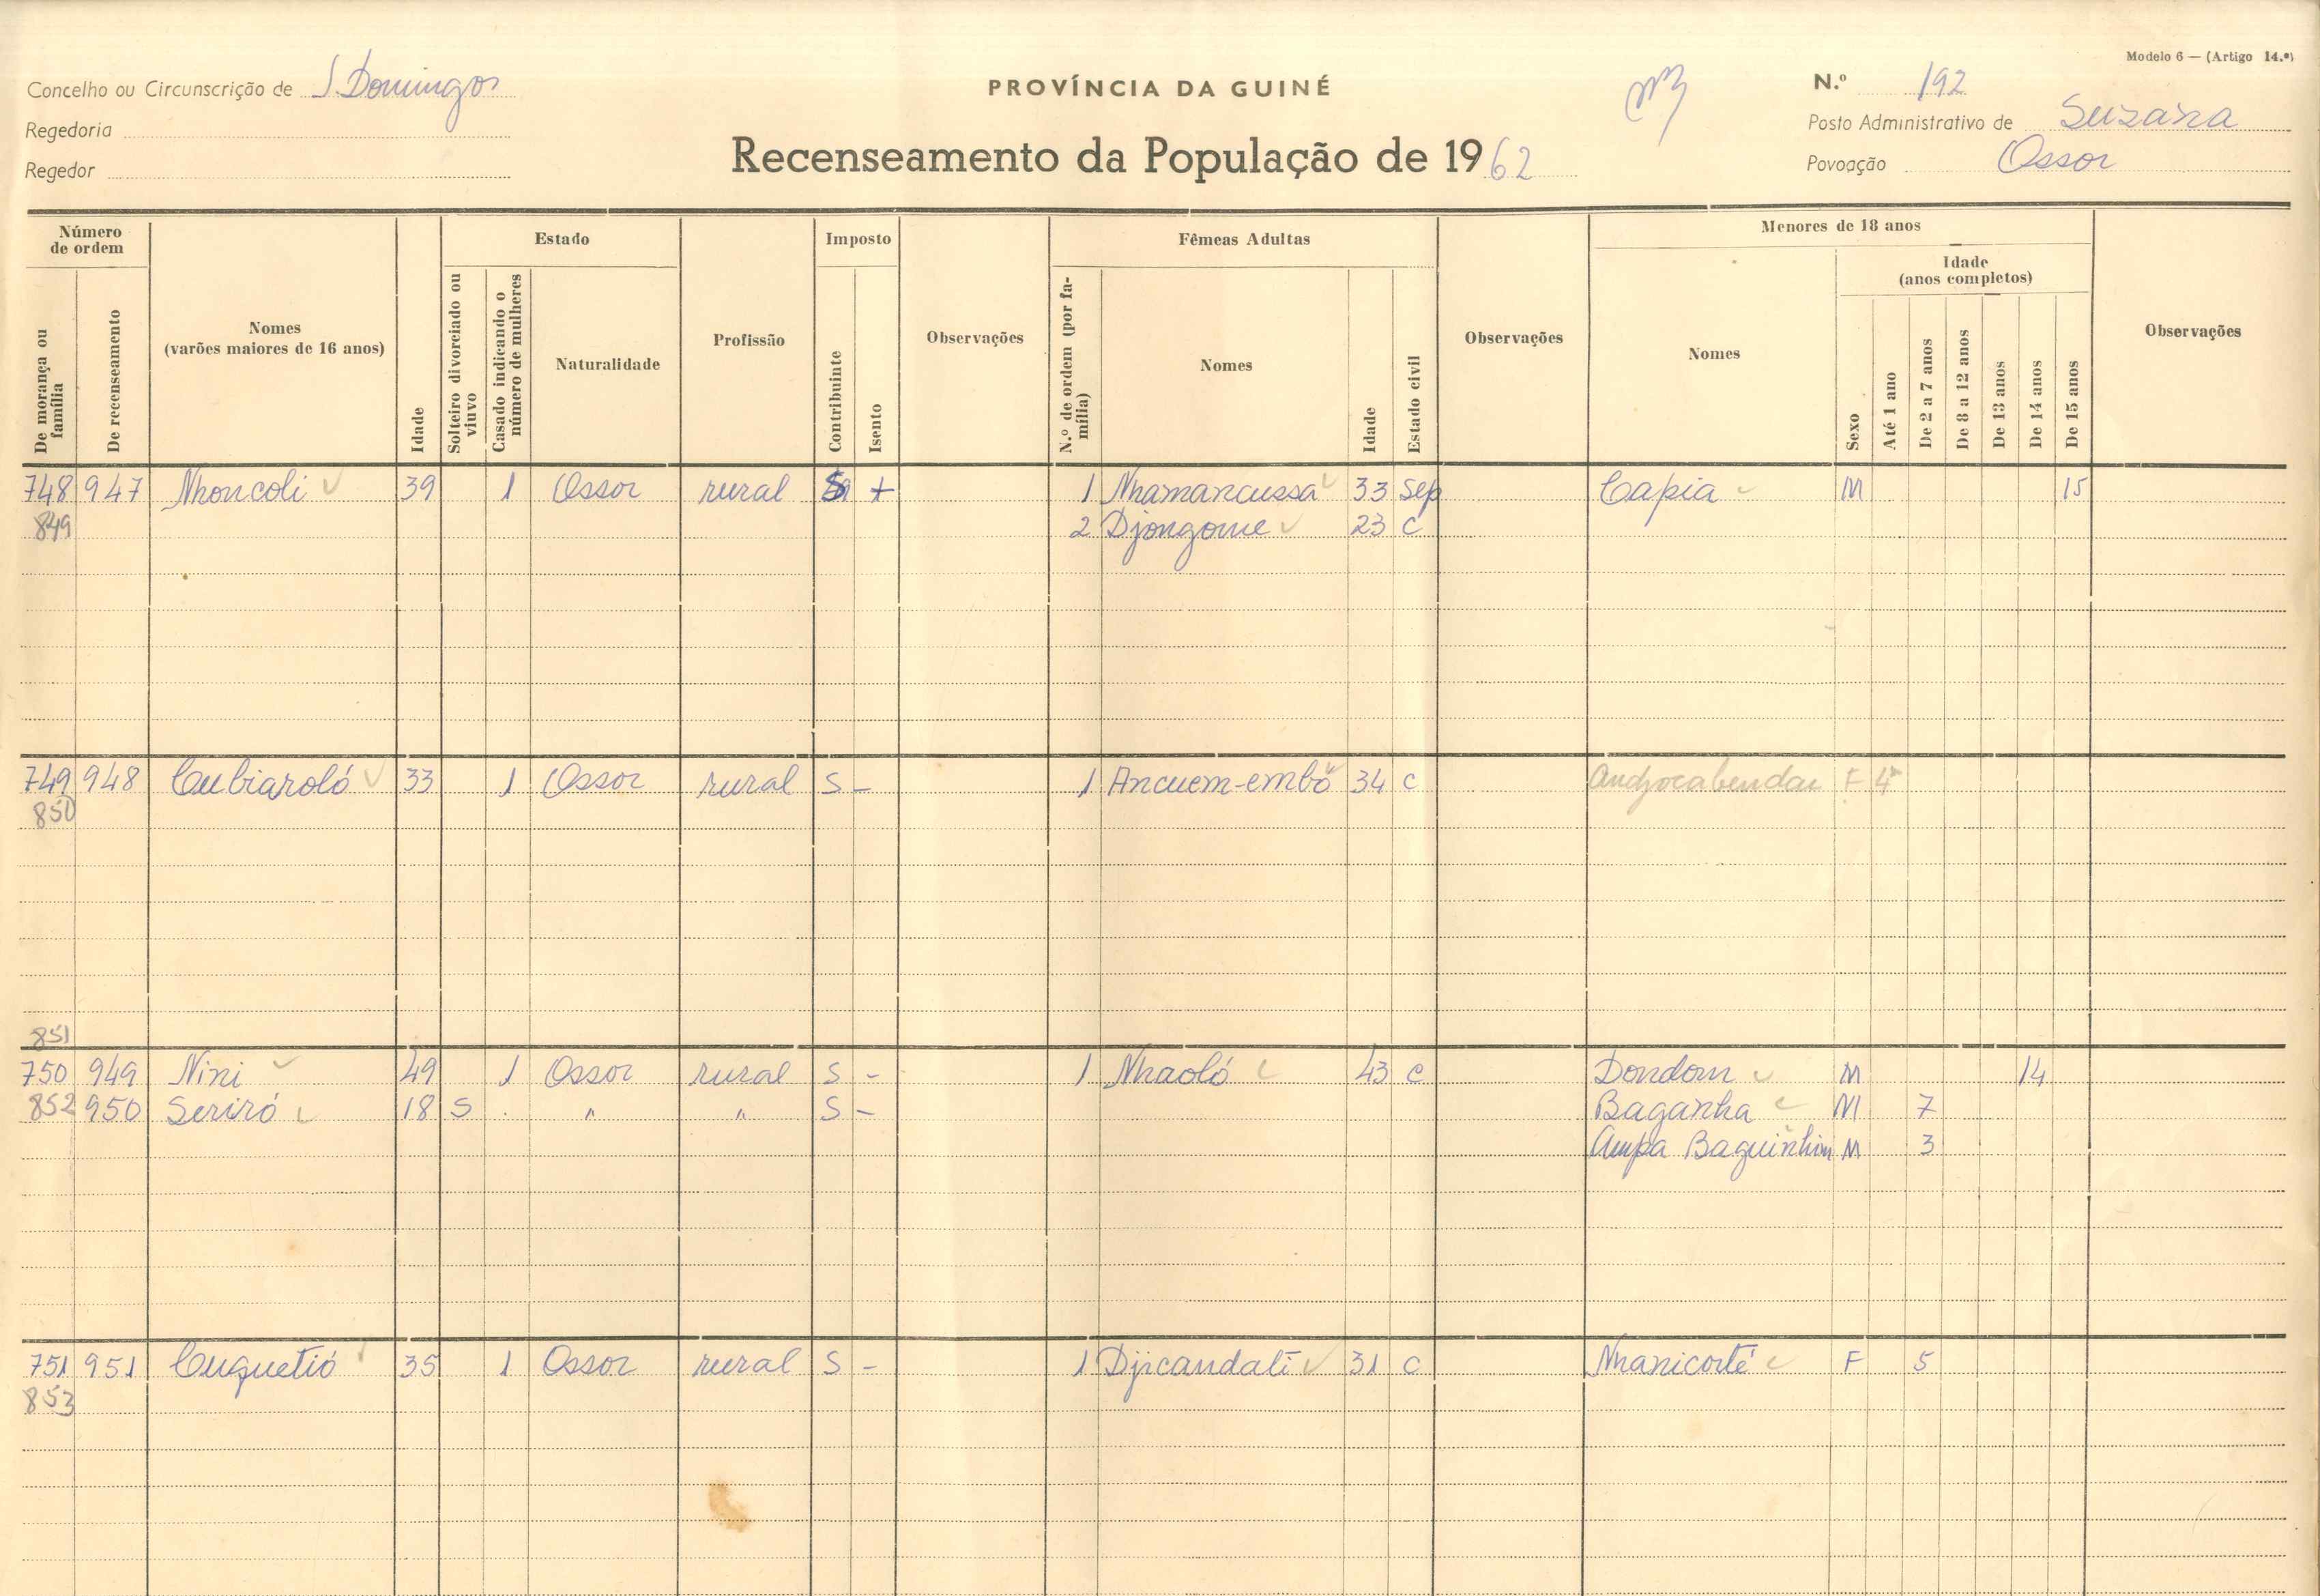 Modelo 6 — (Artigo 14.º)
Concelho ou Circunscrição de S. Domingos
PROVÍNCIA DA GUINÉ
N.º 192
Regedoria
Posto Administrativo de Suzana
Regedor
Recenseamento da População de 1962
Povoação Ossor
Número de ordem
Estado
Imposto
Fêmeas Adultas
Menores de 18 anos
Idade (anos completos)
De morança ou família
De recenseamento
Nomes (varões maiores de 16 anos)
Idade
Solteiro divorciado ou viuvo
Casado indicando o número de mulheres
Naturalidade
Profissão
Contribuinte
Isento
Observações
N.º de ordem (por família)
Nomes
Idade
Estado civil
Observações
Nomes
Sexo
Até 1 ano
De 2 a 7 anos
De 8 a 12 anos
De 13 anos
De 14 anos
De 15 anos
Observações
748 947 Nhoncoli 39 1 Ossor rural + 1 Nhamancussa 33 Sep Capia M 15
849 2 Djongome 23 C
749 948 Cubiaroló 33 1 Ossor rural S - 1 Ancuem-embó 34 C Andjocabendau F 4
850
851
750 949 Nini 49 1 Ossor rural S - 1 Nhaoló 43 C Dondom M 14
852 950 Seriró 18 S " " S - Baganha M 7
Ampa Baguinhim M 3
751 951 Cuguetió 35 1 Ossor rural S - 1 Djicandali 31 C Nhanicorté F 5
853